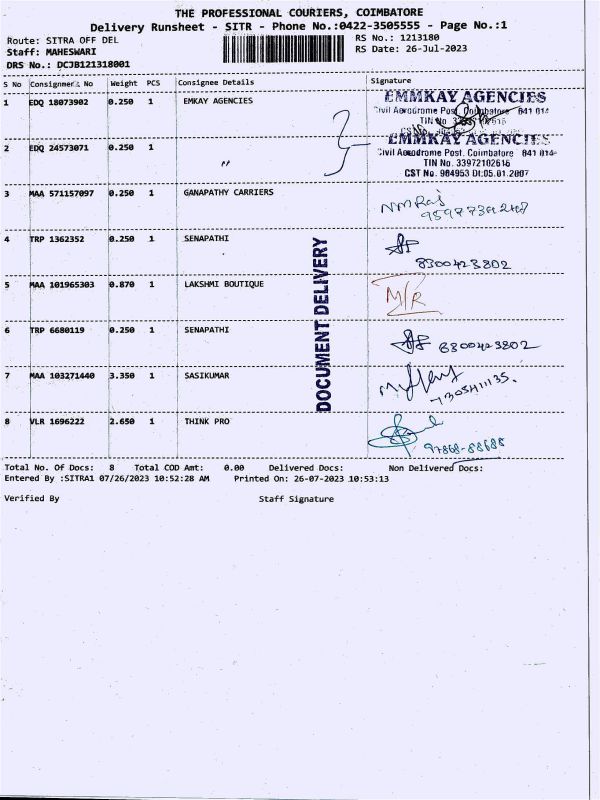 THE PROFESSIONAL COURIERS, COIMBATORE
Delivery Runsheet - SITR - Phone No.:0422-3505555 - Page No.:1
Route: SITRA OFF DEL
RS No.: 1213180
Staff: MAHESWARI
RS Date: 26-Jul-2023
DRS No.: DCJB121318001
S No Consignment No Weight PCS Consignee Details Signature
1 EDQ 18073902 0.250 1 EMKAY AGENCIES
EMMKAY AGENCIES
Civil Aerodrome Post, Coimbatore 641 014
TIN No
2 EDQ 24573071 0.250 1 "
EMMKAY AGENCIES
Civil Aerodrome Post, Coimbatore 641 014
TIN No. 33972102616
CST No. 984953 Dt:05.01.2007
3 MAA 571157097 0.250 1 GANAPATHY CARRIERS
NMRaj
4 TRP 1362352 0.250 1 SENAPATHI
8300423802
5 MAA 101965303 0.870 1 LAKSHMI BOUTIQUE
M/R
6 TRP 6680119 0.250 1 SENAPATHI
8300423802
7 MAA 103271440 3.350 1 SASIKUMAR
8 VLR 1696222 2.650 1 THINK PRO
97868-88688
DOCUMENT DELIVERY
Total No. Of Docs: 8 Total COD Amt: 0.00 Delivered Docs: Non Delivered Docs:
Entered By :SITRA1 07/26/2023 10:52:28 AM Printed On: 26-07-2023 10:53:13
Verified By Staff Signature